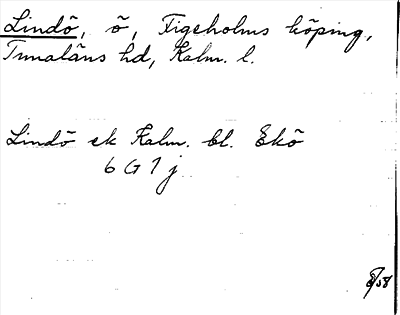 Lindö, ö, Figeholms köping,
Tunaläns hd, Kalm. l.
Lindö ek Kalm. bl. Ekö
6 G 7 j